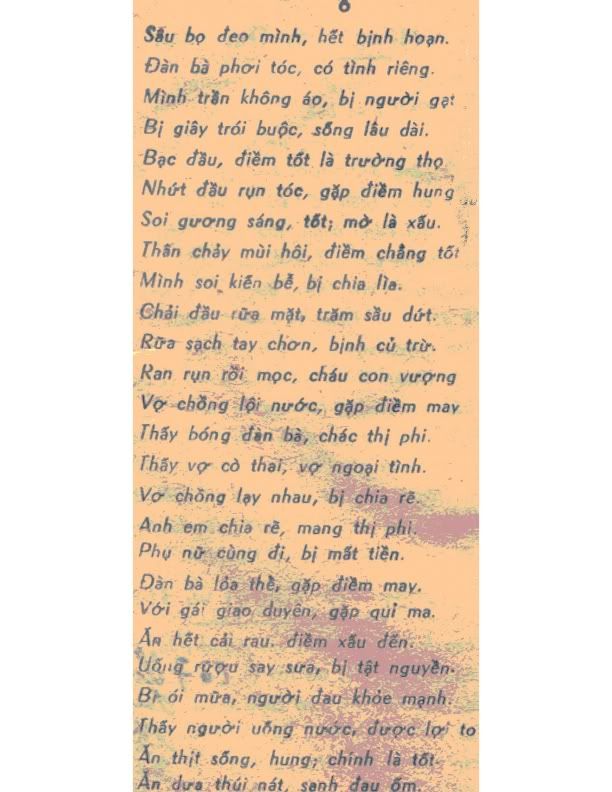 6
Sấu bọ đeo mình, hết bịnh hoạn.
Đàn bà phơi tóc, có tình riêng.
Mình trần không áo, bị người gạt
Bị giây trói buộc, sống lâu dài.
Bạc đầu, điềm tốt là trường thọ
Nhứt đầu rụn tóc, gặp điềm hung
Soi gương sáng, tốt; mờ là xấu.
Thân chảy mùi hôi, điềm chẳng tốt
Mình soi kiến bể, bị chia lìa.
Chải đầu rửa mặt, trăm sầu dứt.
Rữa sạch tay chơn, bịnh củ trừ.
Ran rụn rồi mọc, cháu con vượng
Vợ chồng lội nước, gặp điềm may
Thấy bóng đàn bà, chác thị phi.
Thấy vợ cò thai, vợ ngoại tình.
Vợ chồng lạy nhau, bị chia rẽ.
Anh em chia rẽ, mang thị phi.
Phụ nữ cùng đi, bị mất tiền.
Đàn bà lỏa thề, gặp điềm may.
Với gái giao duyên, gặp quỉ ma.
Ăn hết cải rau. điềm xấu đến.
Uống rượu say sưa, bị tật nguyền.
Bị ói mữa, người đau khỏe mạnh.
Thấy người uống nước, được lợi to
Ăn thịt sống, hung; chính là tốt.
Ăn dưa thúi nát, sanh đau ốm.